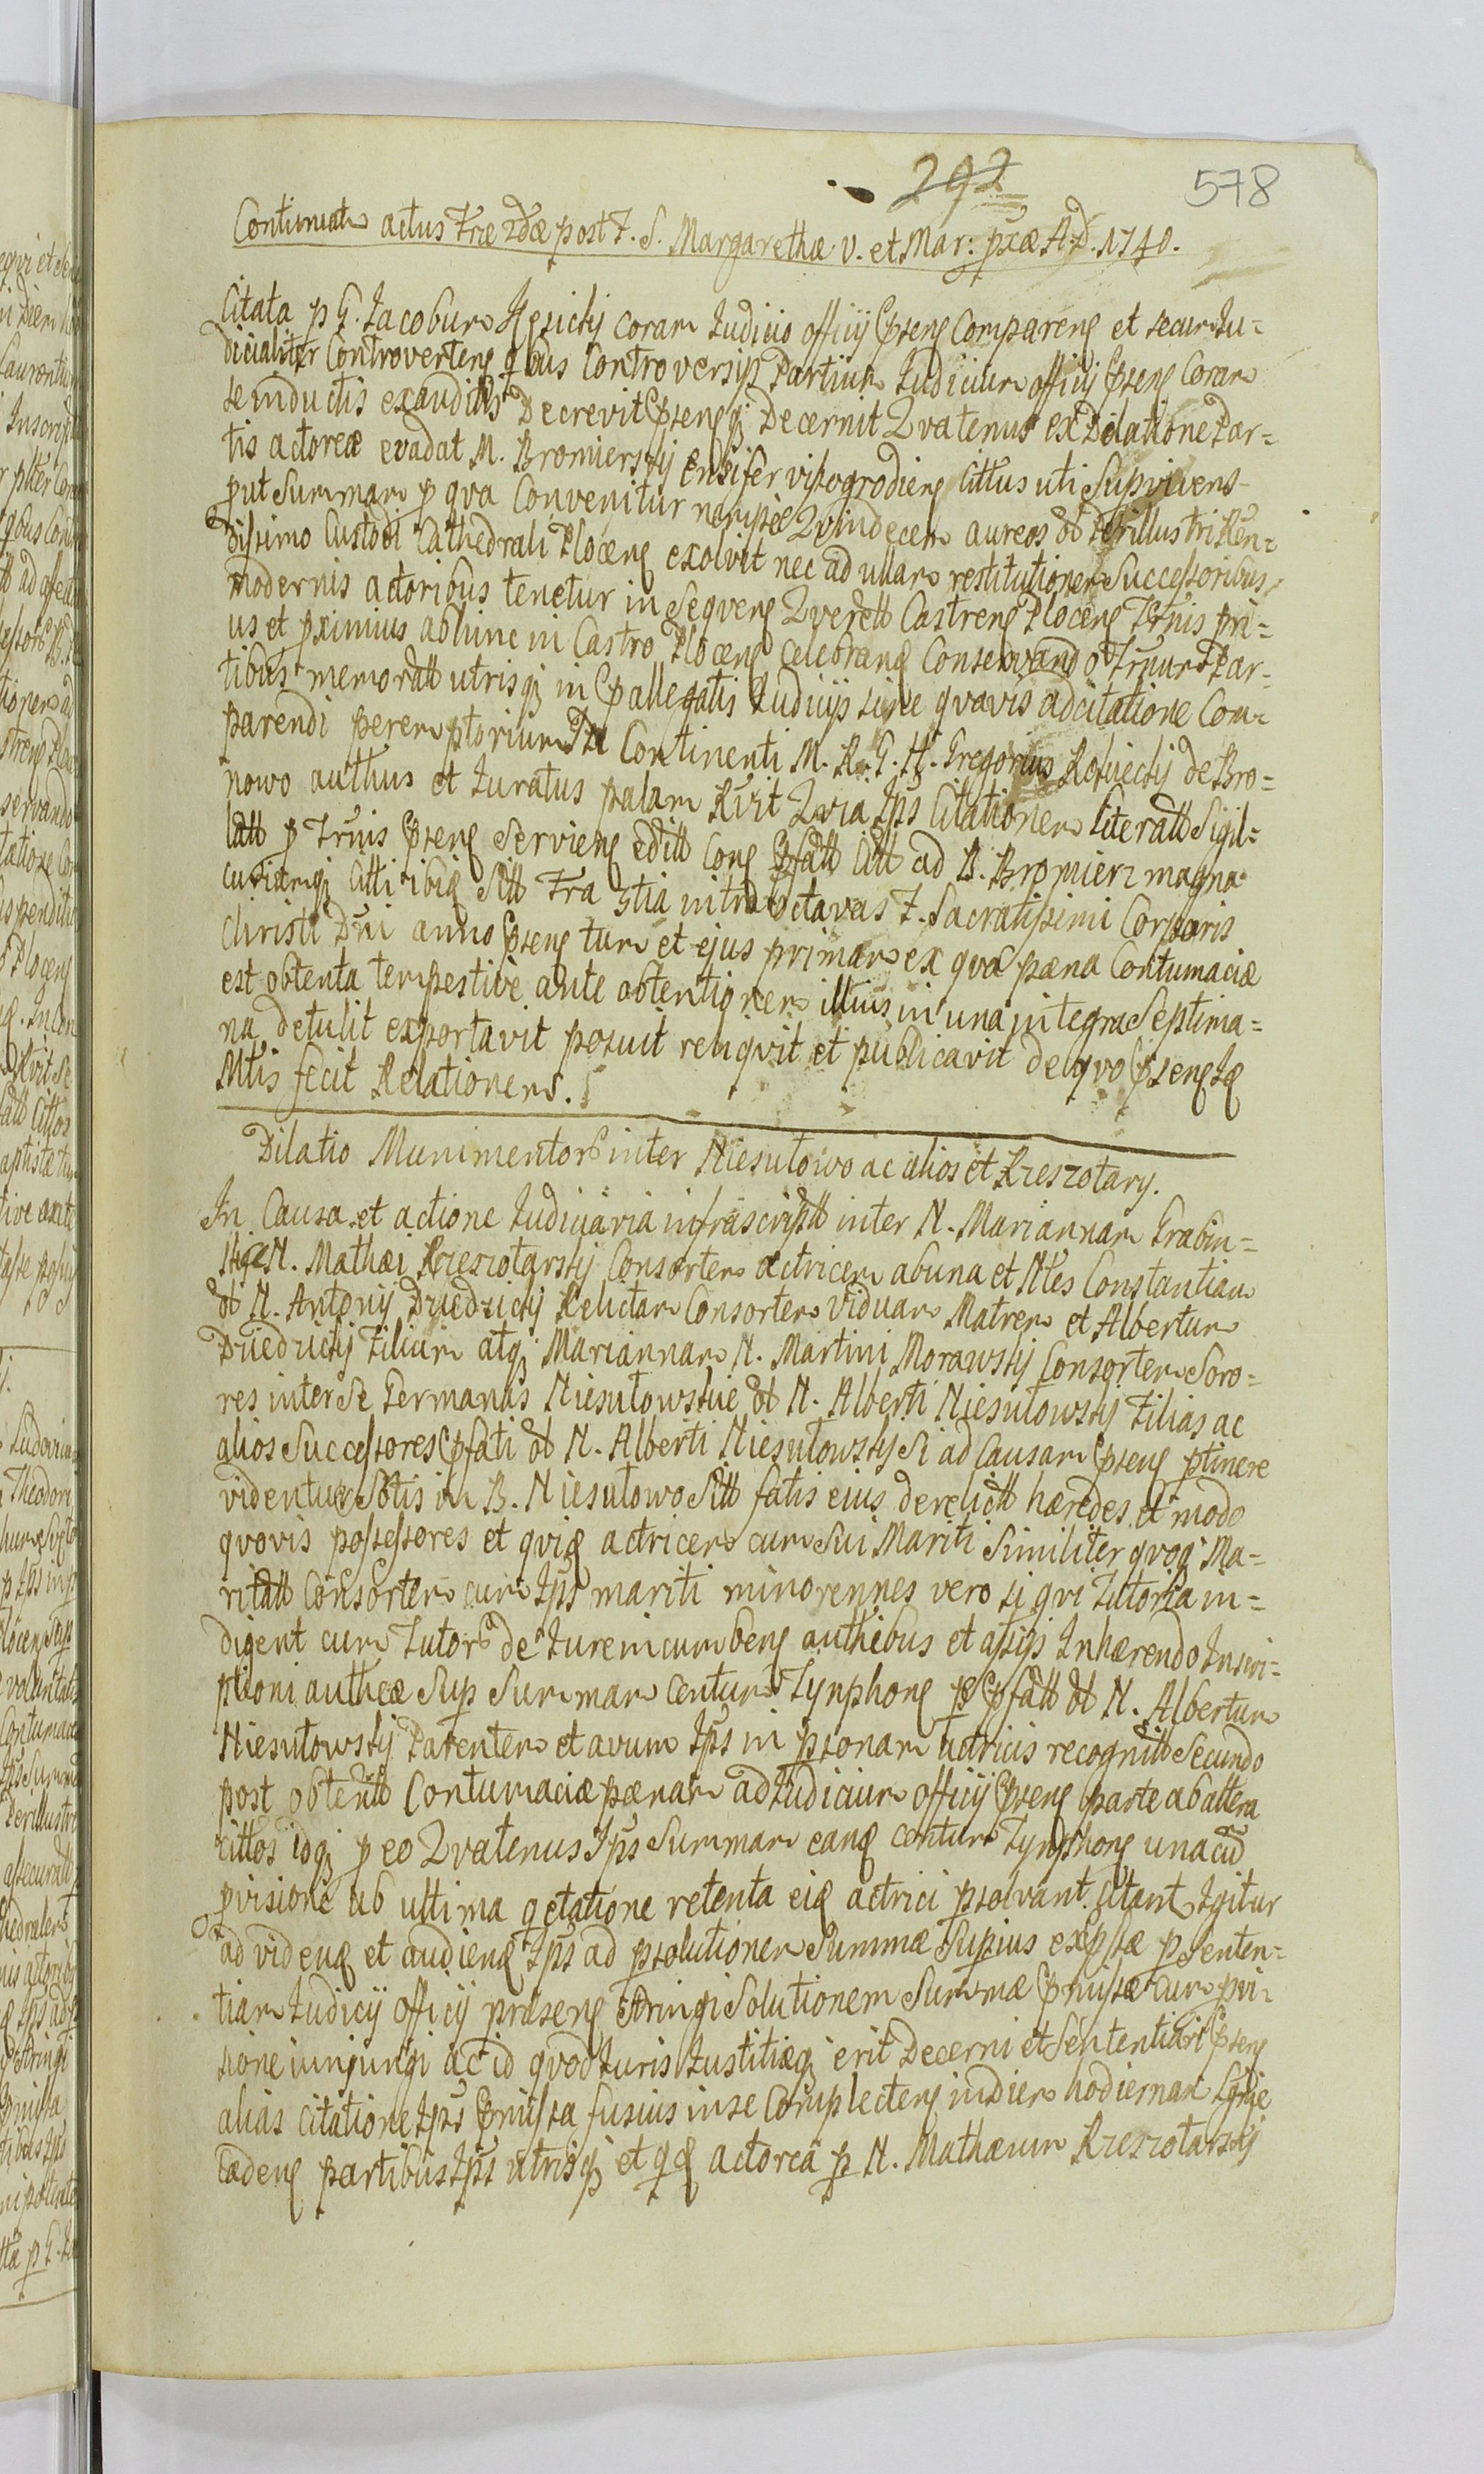 292
578
Continuatio actus Fræ 2dæ post F. S. Margarethæ V. et Mar: pxæ A. D. 1740.
Citata p G. Jacobum coram Judicio officij pseng Compareng et secum Ju=
dicialiter Controverteng qbus Controversijs Partium Judicium officij pseng Coram
se inductis exauditis Decrevit psengq Decernit Qvatenus ex Dilatione Par=
tis actoreæ evadat M. Bromierskj Ensifer Vissogrodieng Cittus uti Supvivens
put Summam p qva Convenitur nempè Qvindecem aureos Perillustri Ren=
dissimo Custodi Cathedrali Ploceng exolvit nec ad ullam restitutionem Successoribus
modernis actoribus tenetur in Seqveng Qverell Castreng Ploceng Trnis pri=
us et pximius abhinc in Castro Ploceng Celebrang Conservando Trnum Par=
tibus memoratt utrisq in pallegatis Judicijs sine qvavis adcitatione Com=
parendi peremptorium In Continenti M. R. G. H. Gregorius de Bro=
nowo authus et Juratus palam Rvit Qvia Jps Citationem Literatt Sigil=
latt p Trnis pseng Servieng editt Cong pfatt Citt ad B. Bromierz magna
Curiamq Citti ibiq Sitt Fra 5tia intra octavas F. Sacratissimi Corporis
Christi Dni anno pseng tum et ejus primam ex qva pæna Contumaciæ
est obtenta tempestivè ante obtentionem illius in una integra Septima=
na detulit exportavit posuit renqvit et publicavit de qvo pseng
Mtis fecit Relationem.
Dilatio Munimentor inter Niesutowo ac alios et Krzeszotary.
In Causa et actione Judiciaria infrascriptt inter N. Mariannam Grabin=
N. Mathæi Krzeszotarskj Consortem actricem ab una et Ntles Constantiam
N. Antonij Druedzickj Relictam Consortem Viduam Matrem et Albertum
Druedzickj Filium atq Mariannam N. Martini Morawskj Consortem Soro=
res inter Se Germanas Niesutowskie N. Alberti Niesutowskj Filias ac
alios Successores pfati N. Alberti Niesutowskj Si ad Causam pseng ptinere
videntur in B. Niesutowo Sitt fatis eius derelictt hæredes et modo
qvovis possessores et qviq actricem cum Sui Mariti Similiter qvoq Ma=
ritatt Consortem cum Jps mariti minorennes vero si qvi Tutoria in=
digent cum Tutor de Jure incumbeng authibus et assijs Inhærendo Inscri=
ptioni autheæ Sup Summam centum Tynphong p pfatt N. Albertum
Niesutowskj Parentem et avum Jps in psonam actricis recognitt Secundo
post obtentt Contumaciæ pænam ad Judicium officij pseng parte ab altera
cittos idq p eo Qvatenus Jps Summam eang centum Tynphong una cum
pvisione ab ultima qetatione retenta eiq actrici psolvant. Citant Igitur
ad videng et audieng Jps ad psolutionem Summæ Supius expssæ p Senten=
tiam Judicij officij præseng stringi Solutionem Summæ pmissæ cum pvi=
sione iunjungi ac id qvod Juris Justitiæq erit Decerni et Sententiari pseng
alias citatione Jps pmissa fusius in se Complecteng in diem hodiernam
cædeng partibus Jps utrisq et qq actorea p N. Mathæum Krzeszotarskj